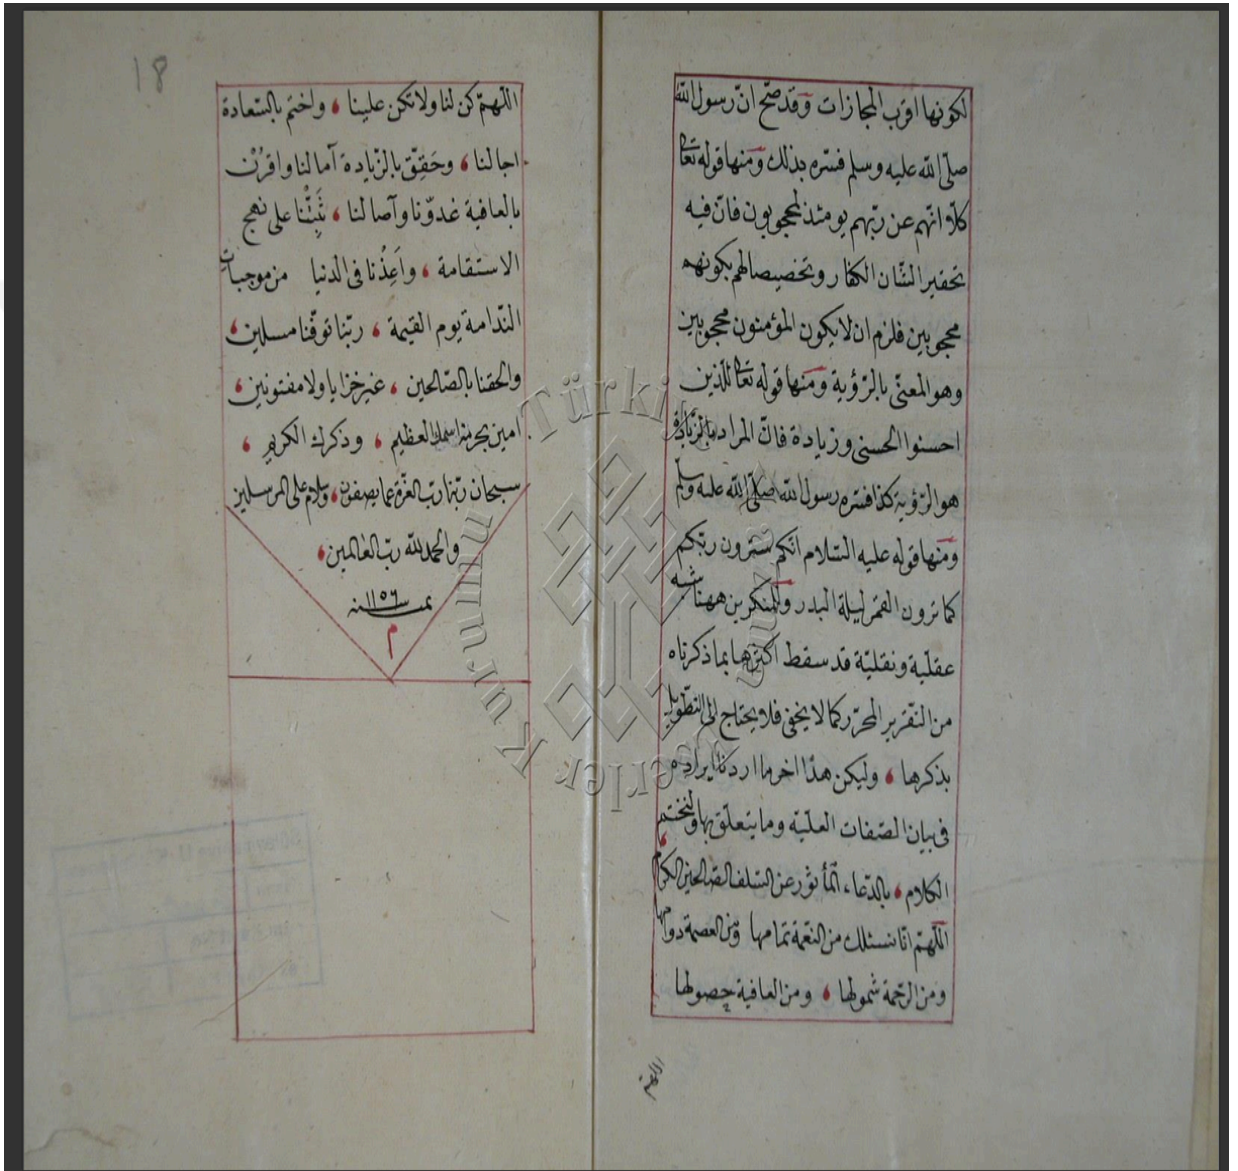 لكونها اقرب المجازات وقد صحّ انّ رسول الله
صلّى الله عليه وسلم فسّره بذلك ومنها قوله تعالى
كلّا انّهم عن ربّهم يومئذ لمحجوبون فانّ فيه
تحقير الشّان الكفار وتخصيصا لهم بكونهم
محجوبين فلزم ان لا يكون المؤمنون محجوبين
وهو المعنّى بالرّؤية ومنها قوله تعالى للّذين
احسنوا الحسنى وزيادة فانّ المراد بالزّيادة
هو الرّؤية كذا فسّره رسول الله صلّى الله عليه وسلّم
ومنها قوله عليه السّلام انّكم سترون ربّكم
كما ترون القمر ليلة البدر وللمنكرين ههنا شبه
عقليّة ونقليّة قد سقط اكثرها بما ذكرناه
من التّقرير المحرّر كما لا يخفى فلا يحتاج الى التّطويل
بذكرها ، وليكن هذا اخر ما اردنا ايراده
فى بيان الصّفات العليّه وما يتعلّق بها ولنختم
الكلام ، بالدّعاء المأثور عن السّلف الصّالحين الكرام
اللّهمّ انّا نسئلك من النّعمة تمامها ومن العصمة دوامها
ومن الرّحمة شمولها ، ومن العافية حصولها
اللهم
18
اللّهمّ كن لنا ولا تكن علينا ، واختم بالسّعادة
اجالنا ، وحَقِّق بالزّيادة آمالنا واقرُنْ
بالعافية غدوّنا وآصالنا ، ثَبِّتْنا على نهج
الاستقامة ، واَعِذْنا فى الدنيا من موجبات
النّدامة يوم القيمة ، ربّنا توفّنا مسلمين ،
والحقنا بالصّالحين ، غير خزايا ولا مفتونين ،
امين بحرمة اسمك العظيم ، وذكرك الكريم ،
سبحان ربّنا ربّ العزّة عما يصفون ، وسلام على المرسلين
والحمد للّه ربّ العالمين ،
تمت سنه ١١٥٦
م
Türkiye Yazma Eserler Kurumu